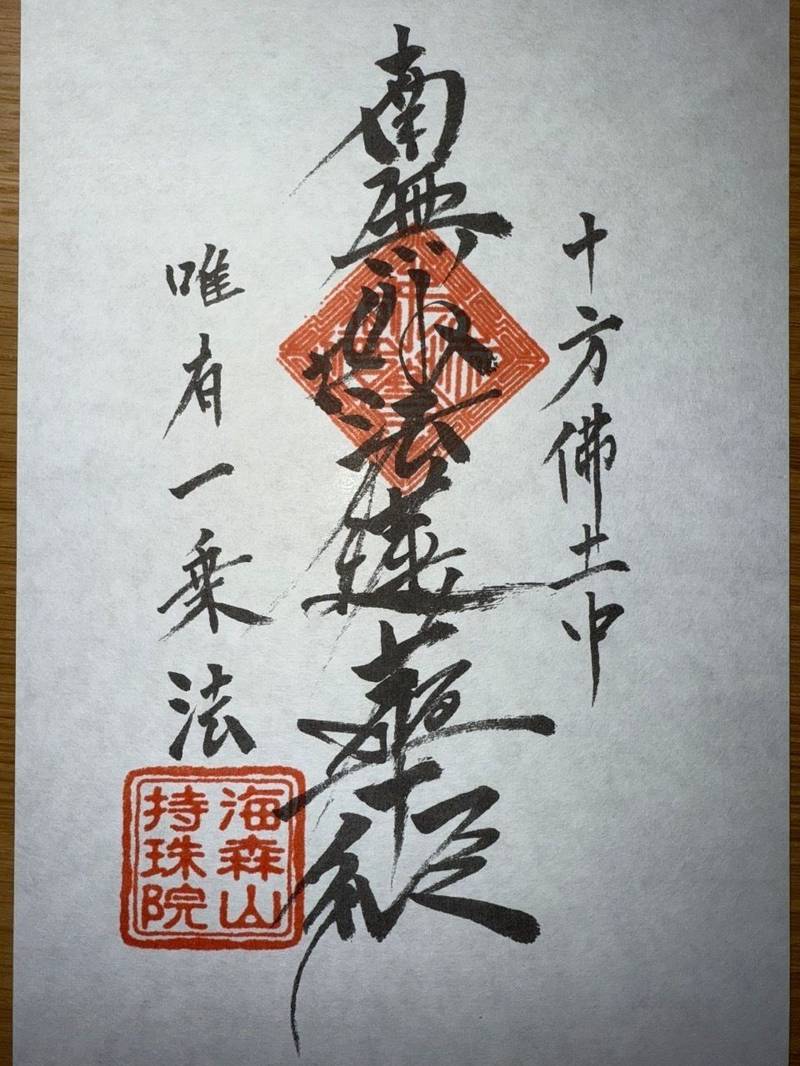 十方佛土中
南無妙法蓮華経
唯有一乗法
海森山
持珠院